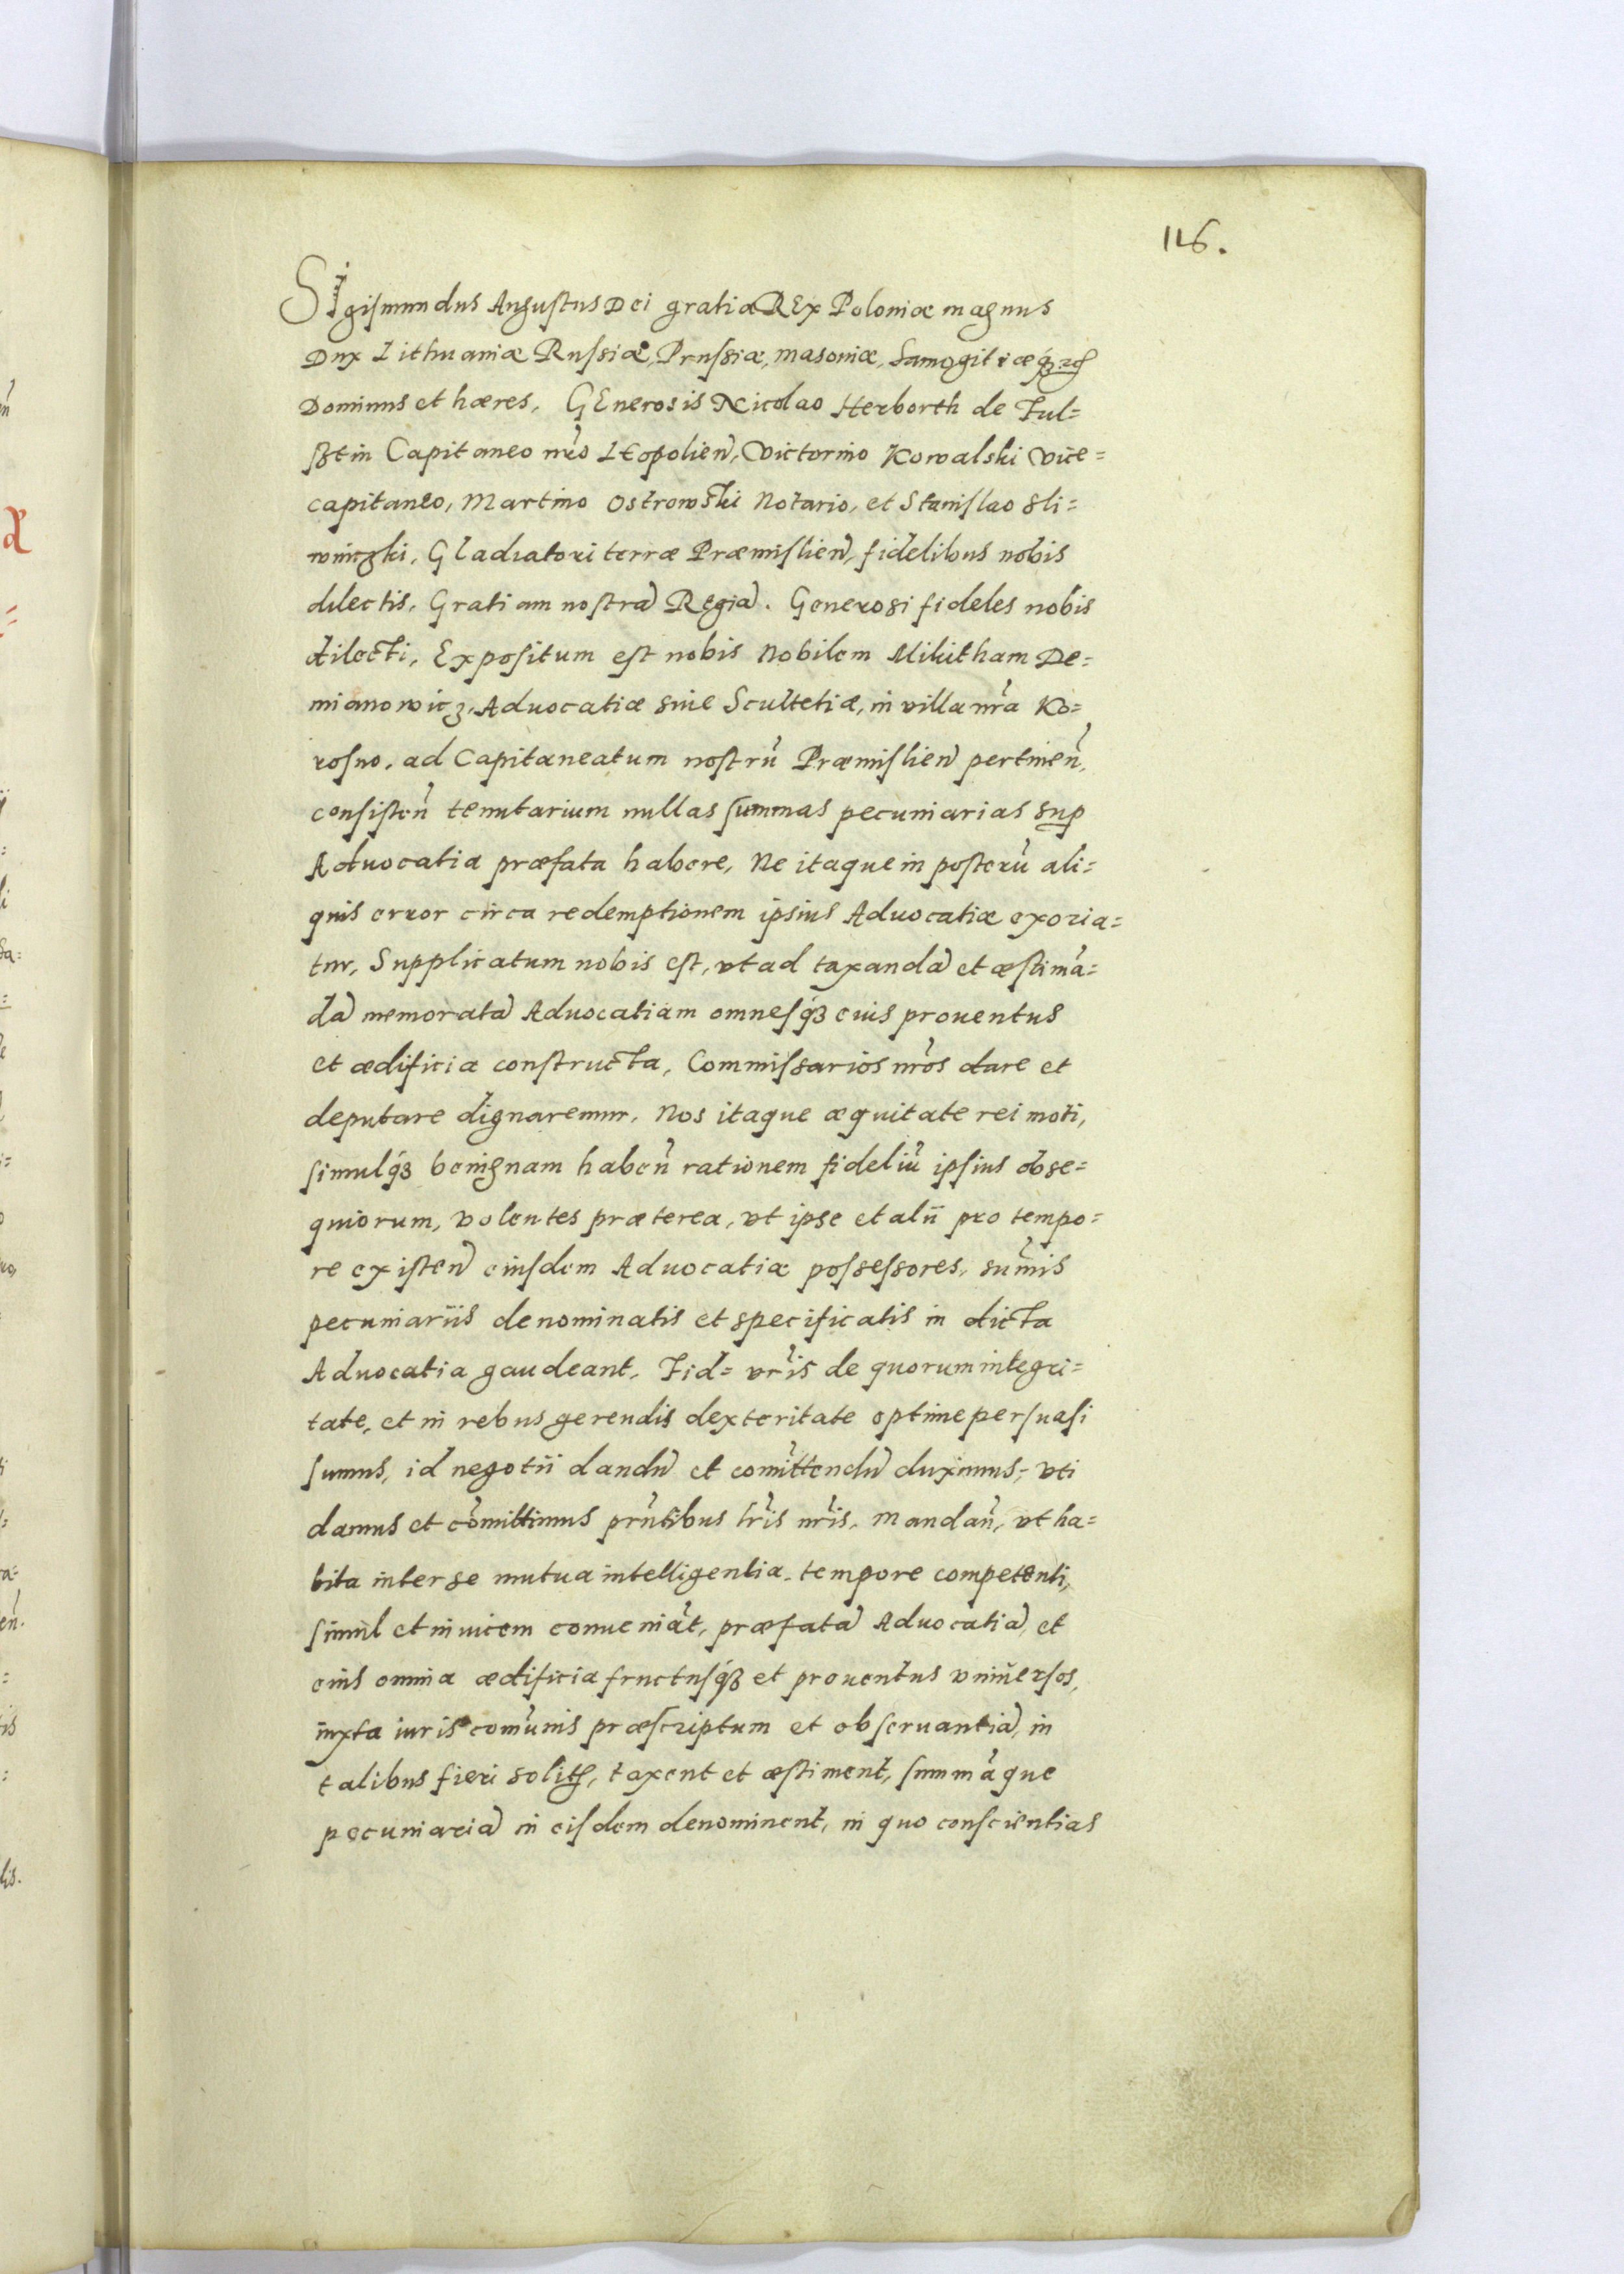 116.
SIgismundus Augustus Dei gratia REx Poloniæ magnus
Dux Lithuaniæ Russiæ, Prussiæ, masouiæ, Samogitiæ q́ꝫ
Dominus et hæres, GEnerosis Nicolao Herborth de Ful=
sztin Capitaneo nr̃o LEopolień, Victorino Kowalski Vice=
capitaneo, Martino Ostrowski Notario, et Stanislao Sli=
winiczki, Gladiatori terræ Præmislień, fidelibus nobis
dilectis, Gratiam nostrã Regiã. Generosi fideles nobis
dilecti, Expositum est nobis Nobilem Mikitham De=
mianowicz, Aduocatiæ siue Scultetiæ, in villa nr̃a Ko=
rosno, ad Capitaneatum nostrũ Præmislień pertineń,
consisteń tenutarium nullas summas pecuniarias sup
Aduocatia præfata habere, Ne itaque in posterũ ali=
quis error circa redemptionem ipsius Aduocatiæ exoria=
tur, Supplicatum nobis est, vt ad taxandã et æstimã=
dã memoratã Aduocatiam omnesq́ꝫ eius prouentus
et ædificia constructa, Commissarios nr̃os dare et
deputare dignaremur, Nos itaque æquitate rei moti,
simulq́ꝫ benignam habeń rationem fideliũ ipsius obse=
quiorum, volentes præterea, vt ipse et alii pro tempo=
re existeń eiusdem Aduocatiæ possessores, sum̃is
pecuniariis denominatis et specificatis in dicta
Aduocatia gaudeant, Fid= vr̃is de quorum integri=
tate, et in rebus gerendis dexteritate optime persuasi
sumus, id negotii dandũ et com̃ittendũ duximus, vti
damus et cõmittimus pr̃ntibus lr̃is nr̃is, Mandań, vt ha=
bita inter se mutua intelligentia, tempore competenti,
simul et inuicem conueniãt, præfatã Aduocatiã, et
eius omnia ædificia fructusq́ꝫ et prouentus vniuersos,
iuxta iuris com̃unis præscriptum et obseruantiã, in
talibus fieri solitã, taxent et æstiment, summãque
pecuniariã in eisdem denominent, in quo conscientias